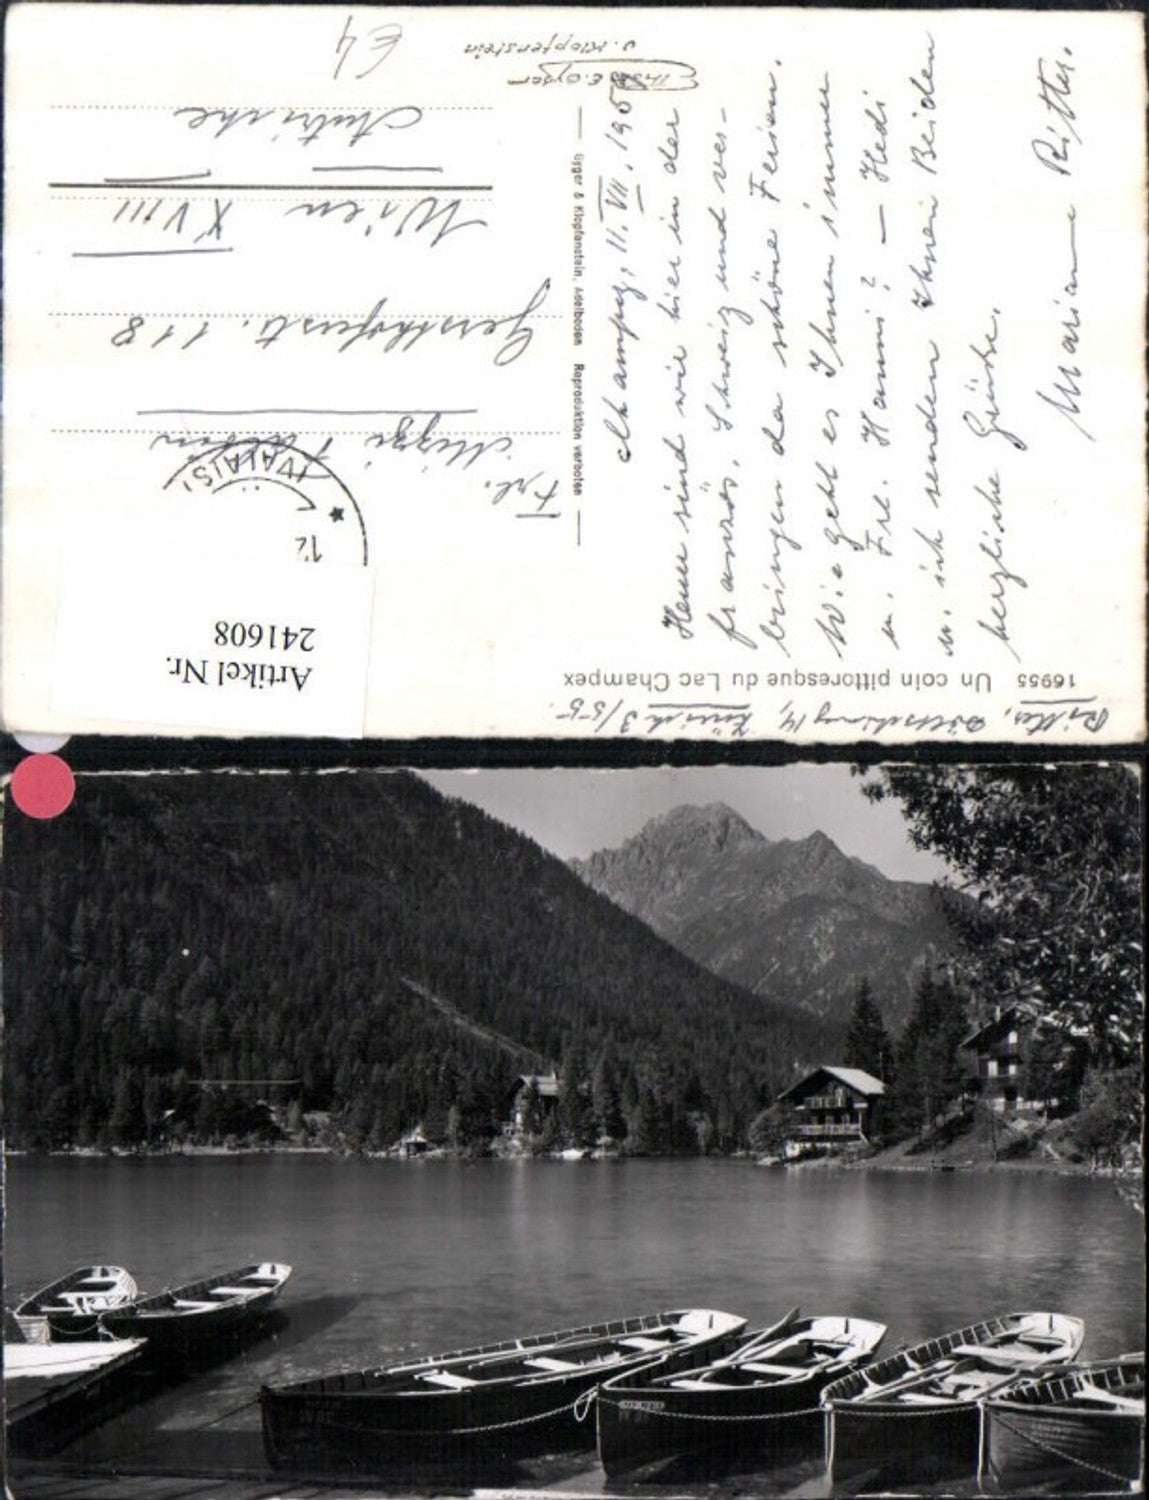 16955 Un coin pittoresque du Lac Champex
Champex, 11. VII. 195
Heuer sind wir hier in der
französ. Schweiz und ver-
bringen da schöne Ferien.
Wie geht es Ihnen immer
u. Frl. Hanni? — Hedi
u. ich senden Ihnen Beiden
herzliche Grüße.
Marianne Ritter.
Ritter, 14, Zürich 3/55.
Gyger & Klopfenstein, Adelboden Reproduktion verboten
Frl.
Mizzi
Gersthoferstr. 118
Wien XVIII
Autriche
E. Gyger
J. Klopfenstein
E4
(VALAIS)
12
Artikel Nr.
241608